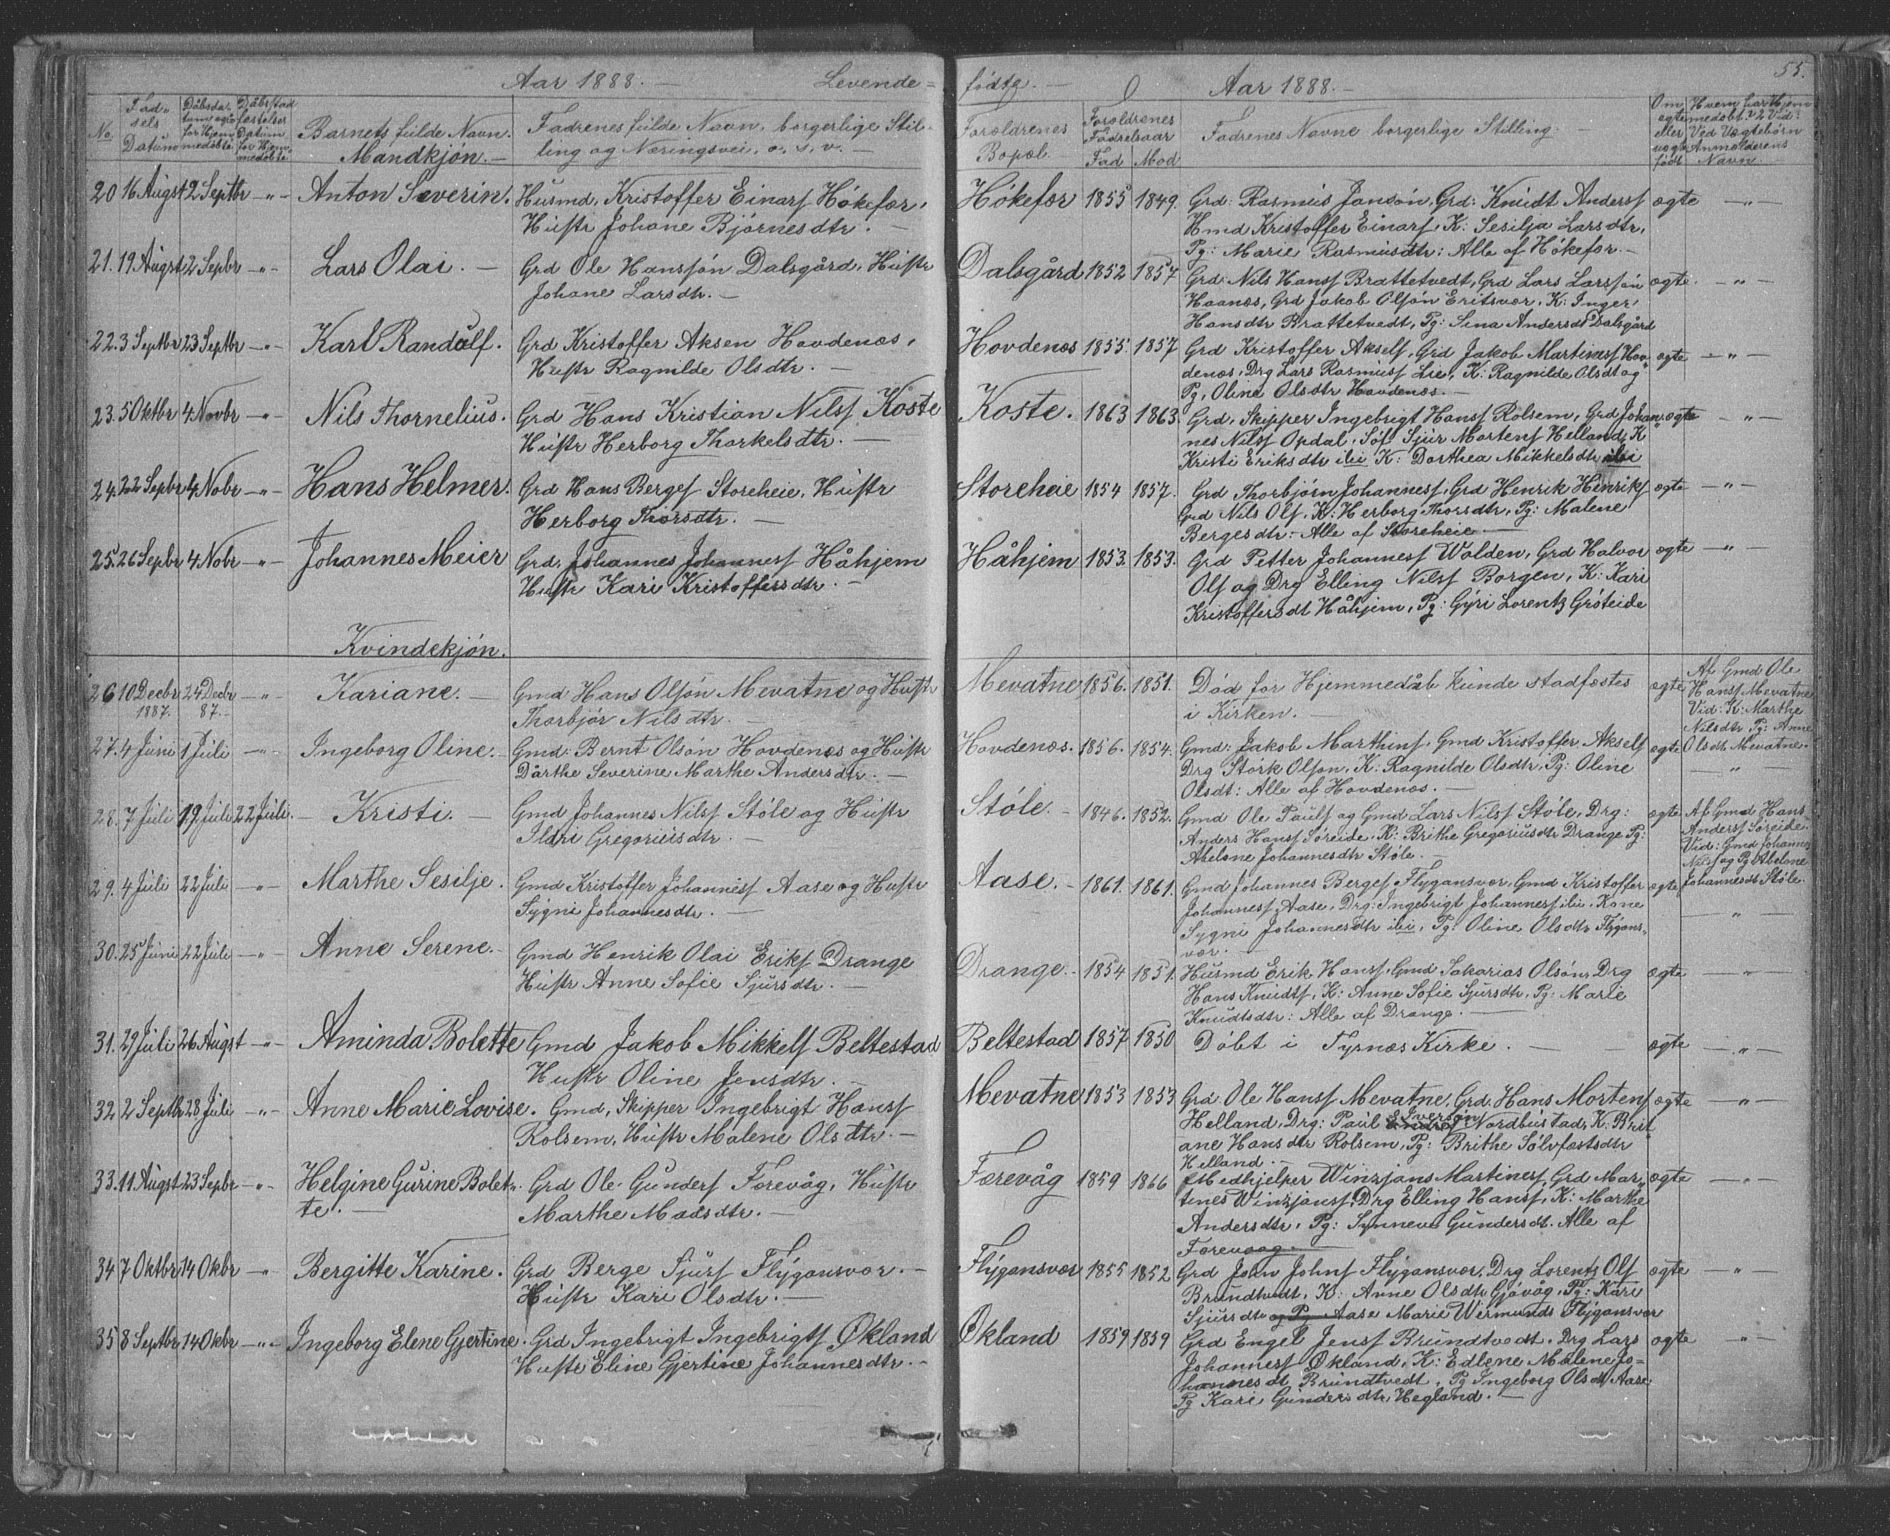 Aar 1888. — Levende=
No.
Fød=
sels
Datum
Dåbsda=
tum og
for Hjem
medøbte
Dåbstad
fæstelses
Datum
for Hjem
medøbte
Barnets fulde Navn.
Mandkjøn. —
Fadrenes fulde Navn, borgerlige Stil-
ling og Næringsvei, o. s. v. —
20 16 Augst 2 Septbr —"— Anton Severin. Husmd. Kristoffer Einarſ Høkefær,
Hustr Johane Bjørnesdtr. —
21. 19 Augst 2 Sepbr —"— Lars Olai. — Grd Ole Hansſøn Dalsgård, Hustr
Johane Larsdtr. —
22. 3 Septbr 23 Septbr —"— Karl Randulf. Grd Kristoffer Aksen Hovdenæs,
Hustr Ragnilde Olsdtr. —
23. 5 Oktbr 4 Novbr —"— Nils Thornelius. Grd Hans Kristian Nilsſ Koste
Hustr Herborg Thorkelsdtr. —
24. 22 Sepbr 4 Nobr —"— Hans Helmer. Grd Hans Bergeſ Storeheie, Hustr
Herborg Thorsdtr. —
25. 26 Sepbr 4 Nobr —"— Johannes Meier Grd. Johannes Johannesſ Håhjem
Hustr Kari Kristoffersdtr. —
Kvindekjøn.
26 10 Decbr 24 Decbr —"— Kariane. — Gmd Hans Olsøn Mevatne og Hustr
1887. 87. — Thorbjør Nilsdtr. —
27. 4 Juni 1 Juli —"— Ingeborg Oline. — Gmd: Bernt Olsøn Hovdenæs og Hustr
Dårthe Severine Marthe Andersdtr. —
28. 7 Juli 19 Juli 22 Juli. — Kristi. — Gmd Johannes Nilsſ Støle og Hustr
Ildri Gregoriusdtr. —
29. 4 Juli 22 Juli —"— Marthe Sesilje. Gmd Kristoffer Johannesſ Aase og Hustr
Sygni Johannesdtr. —
30. 25 Juni 22 Juli —"— Anne Serene. — Gmd Henrik Olai Eriksſ Drange
Hustr Anne Sofie Sjursdtr. —
31. 29 Juli 26 Augst —"— Aminda Bolette Gmd Jakob Mikkelſ Beltestad
Hustr Oline Jensdtr. —
32. 2 Septbr 28 Juli —"— Anne Marie Lovise. Gmd, Skipper Ingebrigt Hansſ
Rolsem, Hustr Malene Olsdtr. —
33. 11 Augst 23 Sepbr —"— Helgine Gurine Bolet- Grd Ole Gunderſ Færevåg, Hustr
te. — Marthe Madsdtr. —
34 7 Oktbr 14 Okbr —"— Bergitte Karine. Grd Berge Sjurſ Flygansvær. —
Hustr Kari Olsdtr. —
35 8 Septbr 14 Okbr —"— Ingeborg Elene Gjertine. Grd Ingebrigt Ingebrigtſ Økland
Hustr Eline Gjertine Johannesdtr. —
fødte. — Aar 1888. — 55.
Forældrenes
Bopæl.
Forældrenes
Fødselsaar
Fad Mod
Fadrenes Navne borgerlige Stilling. —
Om
ægte
eller
uægte
født
Hvem har Hjem
medøbt? 2 Vid?
Ved Uægtebørn
Anmelderens
Navn.
Høkefær 1855 1849. Grd: Rasmus Jansøn, Grd: Knudt Andersſ ægte —"—
Hmd Kristoffer Einarſ, K: Sesilja Larsdtr,
Pg: Marie Rasmusdtr: Alle af Høkefær. —
Dalsgård 1852 1857 Grd: Nils Hansſ Brattetvedt, Grd Lars Larsſøn ægte. —"—
Haanæs, Grd Jakob Olsøn Eritsvær, K: Inger
Hansdtr Brattetvedt, Pg: Sina Andersdt Dalsgård
Hovdenæs 1855. 1857 Grd Kristoffer Akselſ, Grd Jakob Martinusſ Hov- ægte —"—
denæs, Drg Lars Rasmusſ Lie, K: Ragnilde Olsdt og
Pg, Oline Olsdtr Hovdenæs. —
Koste. 1863 1863. Grd, Skipper Ingebrigt Hansſ Rolsem, Grd Johan- ægte —"—
nes Nilsſ Opdal, Søſ Sjur Mortenſ Helland, K
Kristi Eriksdtr ibi K: Dorthea Mikkelsdtr ibi
Storeheie 1854 1857. Grd Thorbjørn Johannesſ, Grd Henrik Hinriks ægte —"—
Grd Nils Olſ, K: Herborg Thorsdtr, Pg: Malene
Bergesdtr: Alle af Storeheie —
Håhjem 1853. 1853. Grd Petter Johannesſ Wålden, Grd Halvor ægte —"—
Olſ og Drg Elling Nilsſ Borgen, K: Kari
Kristoffersdt Håhjem, Pg: Gyri Lorentz Grøteide
Mevatne 1856. 1851. Død før Hjemmedåb kunde stadfæstes ægte Af Gmd Ole
i Kirken. — Hansſ Mevatne
Vid: K: Marthe
Nilsdtr, Pg: Anne
Olsdt. Mevatne.
Hovdenæs. 1856. 1854. Gmd: Jakob Marthinſ, Gmd Kristoffer Akselſ ægte —"—
Drg Størk Olsøn, K: Ragnilde Olsdtr, Pg: Oline
Olsdt: Alle af Hovdenæs. —
Støle. — 1846. 1852. Gmd Ole Paulſ og Gmd Lars Nilsſ Støle, Drg: ægte Af Gmd Hans
Anders Hansſ Søreide, K: Brithe Gregoriusdtr Drange Pg: Andersſ Søreide
Abelone Johannesdtr Støle. — Vid: Gmd Johannes
Nilsſ og Pg Abelone
Johannesdt Støle.
Aase. — 1861. 1861. Gmd Johannes Bergeſ Flygansvær, Gmd Kristoffer ægte
Johannesſ Aase, Drg: Ingebrigt Johannesſ ibi, Kone —"—
Sygni Johannesdtr ibi, Pg: Oline Olsdtr Flygans-
vær.
Drange. — 1854 1851. Husmd Erik Hansſ, Gmd Sakarias Olsøn, Drg ægte —"—
Hans Knudtſ, K: Anne Sofie Sjursdtr, Pg: Marie
Knudtsdtr: Alle af Drange. —
Beltestad 1857 1850 Døbt i Tysnæs Kirke. — ægte —"—
Mevatne 1853 1853 Grd Ole Hansſ Mevatne, Grd. Hans Mortenſ ægte —"—
Iversøn
Helland, Drg: Paul Nordbustad, K: Brit
ane Hansdtr Rolsem, Pg: Brithe Sølvfæstsdtr
Helland. —
Færevåg 1859 1866 Medhjelper Winzjans Martinesſ, Grd Mar- ægte —"—
tines Winzjansſ, Drg Elling Hansſ, K: Marthe
Andersdtr, Pg: Synneva Gundersdt. Alle af
Færevaag. —
Flygansvær 1855 1852 Grd John Johnſ Flygansvær, Drg Lorentz Olſ ægte —"—
Brundtvedt, K: Anne Olsdtr Gjøvåg, Pg: Kari
Sjursdtr og Pg Aase Marie Wermunds Flygansvær
Økland 1859 1859 Grd Engel Jensſ Brundtvedt. Drg Lars ægte —"—
Johannesſ Økland, K: Edlene Malene Jo-
hannesdt Brundtvedt, Pg Ingeborg Olsdt Aase
Pg Kari Gundersdtr, Hegland. —